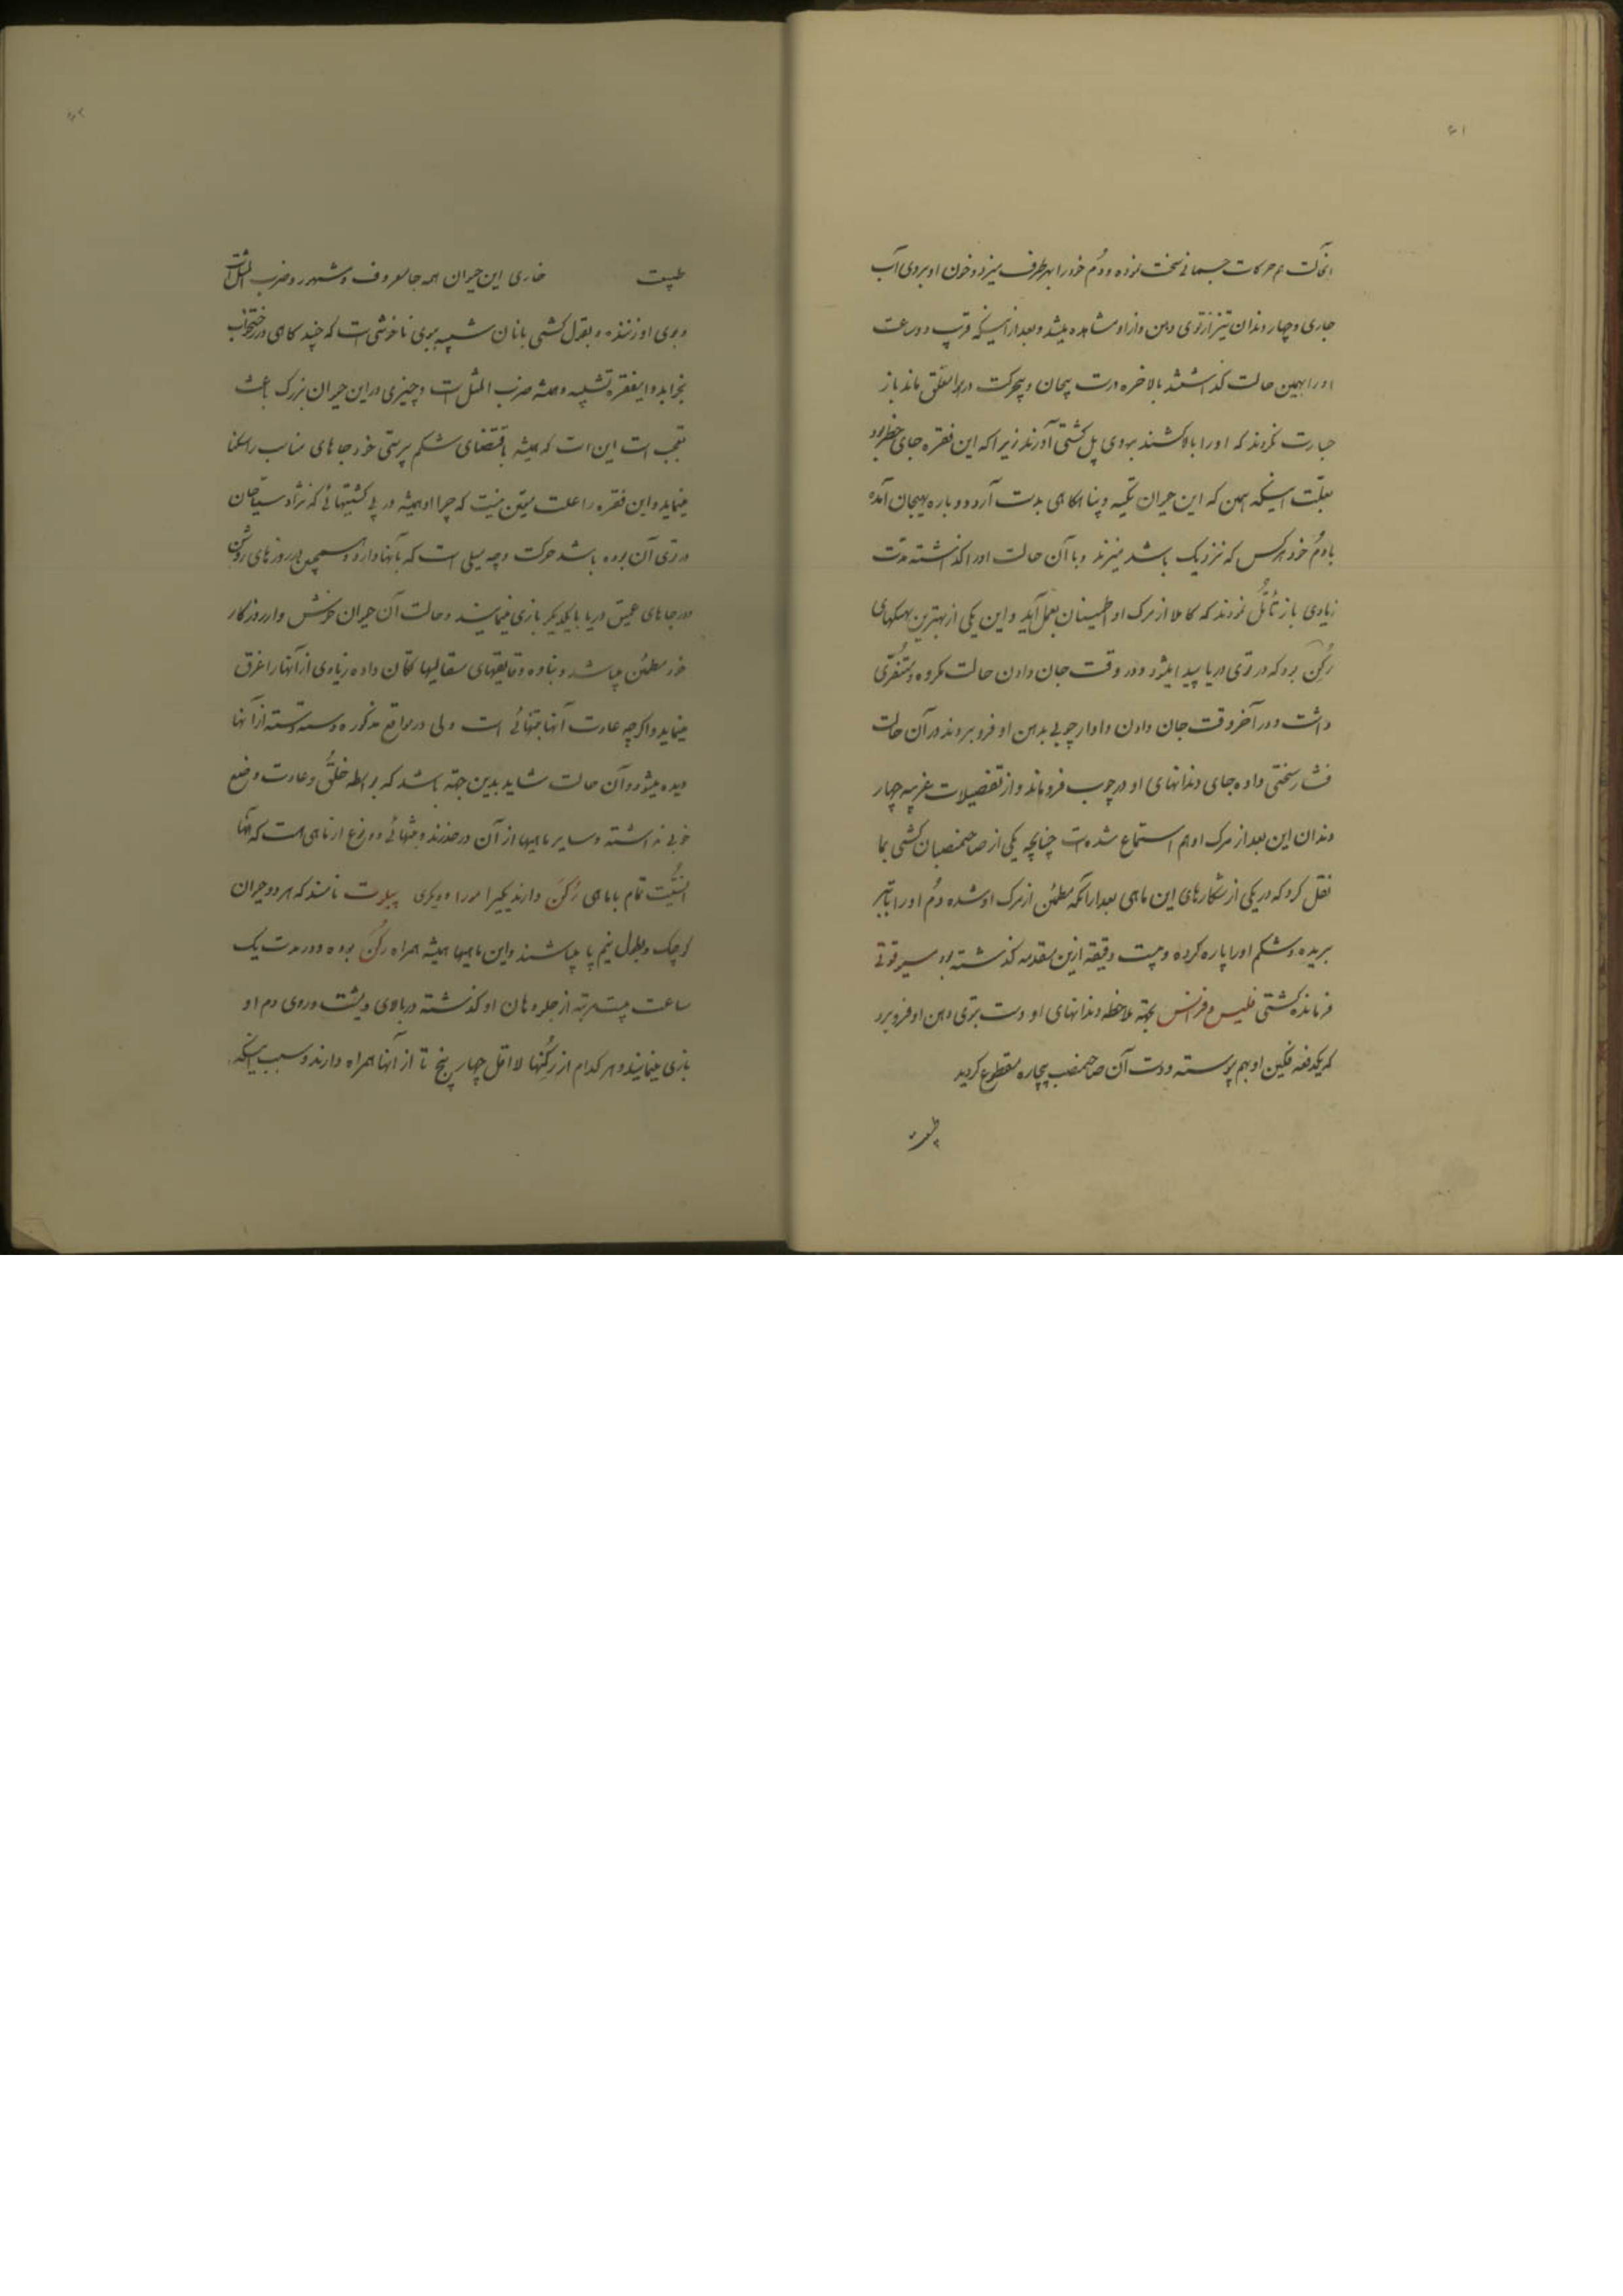 حرکات جسمانی سخت نموده و دُم خود را بهر طرف میزد و خون او بروی آب
جاری و چهار دندان تیز از توی دهن واز او مشاهده میشد و بعد از اینکه قرب دو ساعت
او را بهمین حالت گذاشتند بالاخره درست بیجان و بیحرکت در هوا معلق ماند باز
جسارت نکردند که او را بالا کشند بروی پل کشتی آورند زیرا که این فقره جای خطر بود
بعلّت اینکه همین که این حیوان تکیه و پناهگاهی بدست آرد دوباره بهیجان آمده
با دُم خود هرکس که نزدیک باشد میزند و با آن حالت او را گذاشته مدّت
زیادی باز تأمّل نمودند که کاملا از مرگ او اطمینان بعمل آید و این یکی از بهترین
رُکِن بود که در توی دریا پیدا میشود و در وقت جان دادن حالت مکروه و متنفّری
داشت و در آخر وقت جان دادن وادار چوبی بدهن او فرو بردند در آن حالت
فشار سختی داده جای دندانهای او در چوب فرو ماند و از تفصیلات غریبه چهار
دندان این بعد از مرگ او هم استماع شده است چنانچه یکی از صاحبمنصبان کشتی بما
نقل کرد که در یکی از شکارهای این ماهی بعد از آنکه مطمئن از مرگ او شده دُم او را با تبر
بریده و شکم او را پاره کرده و بیست دقیقه ازین مقدمه گذشته بود
فرمانده کشتی فلیس و فرانس بجهة ملاحظه دندانهای او دست بتوی دهن او فرو برد
که یکدفعه فکین او بهم پیوسته و دست آن صاحبمنصب بیچاره مقطوع گردید
طبیعت خاری این حیوان همه جا معروف و مشهور و ضرب المثل است
و بوی او زننده و بقول کشتی بانان شبیه ببوی ناخوشی است که چند گاهی در رختخواب
بخوابد و اینفقره تشبیه و همیشه ضرب المثل است و چیزی در این حیوان بزرگ باعث
تعجب است این است که همیشه باقتضای شکم پرستی خود جاهای مناسب را سکنا
مینماید و این فقره را علت متیقن نیست که چرا او همیشه در پی کشتیهائی که نژاد سیاهان
در توی آن بوده باشد حرکت و چه میلی است که بآنها دارد و همچنین در روزهای روشن
در جاهای عمیق دریا با یکدیگر بازی مینمایند و حالت آن حیوان خوش و از روزگار
خود مطمئن میباشد و بناوه و قایقهای سقالیها تکان داده زیادی از آنها را غرق
مینماید و اگرچه عادت آنها بتنهائی است ولی در مواقع مذکوره دسته دسته از آنها
دیده میشود و آن حالت شاید بدین جهة باشد که بواسطه خلقُ و عادت وضع
خوبی نداشته و سایر ماهیها از آن در حذرند و بتنهائی دو نوع از ماهی هست که آنها
انسیُّت تمام با ماهی رُکِنَ دارند یکیرا مورا و دیگری پیلوت نامند که هر دو حیوان
کوچک و بطول نیم پا میباشند و این ماهیها همیشه همراه رُکِنَ بوده و در مدت یک
ساعت بیست مرتبه از جلو دهان او گذشته در بالای و پشت و روی دم او
بازی مینمایند و هر کدام از رُکِنها لا اقل چهار پنج تا از آنها همراه دارند و سبب اینکه